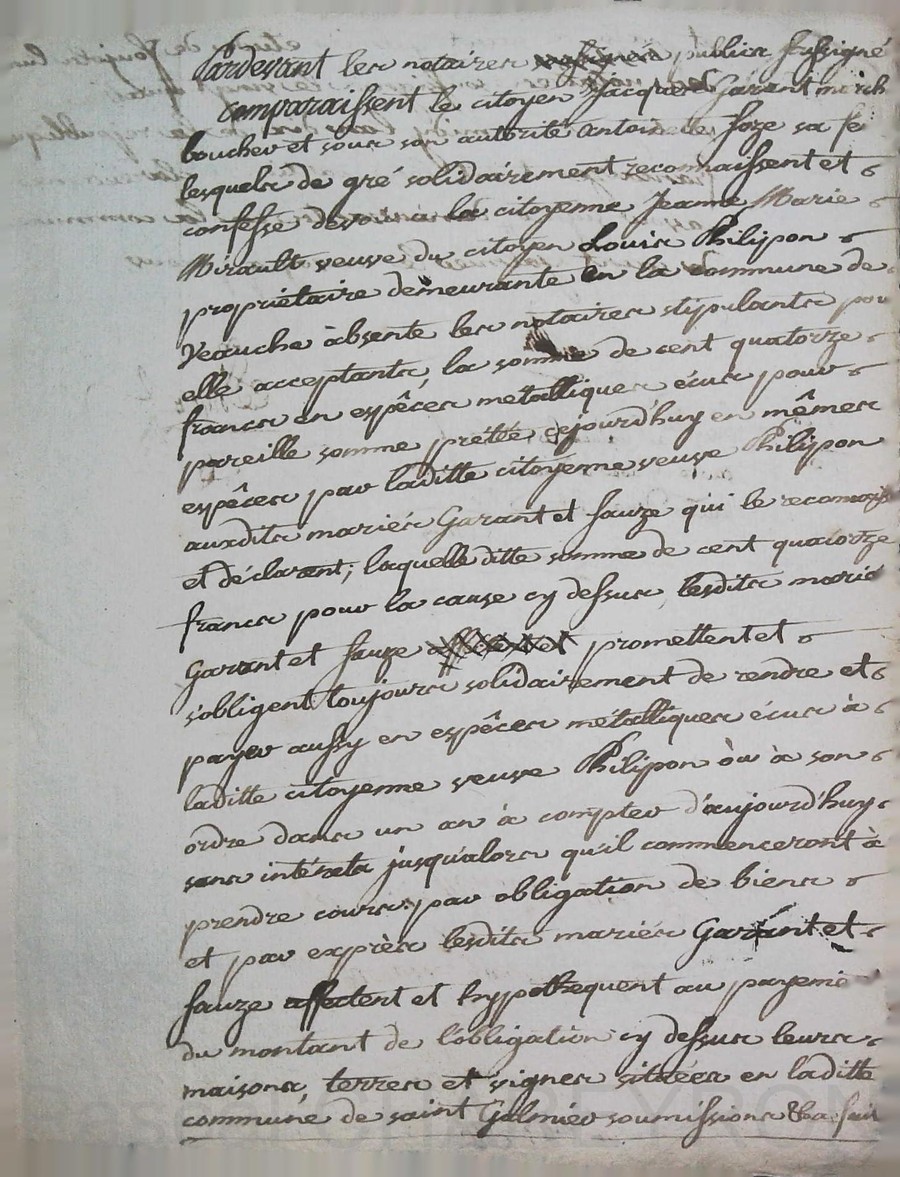 Pardevant les notaires publics sussigné
comparaissent le citoyen Jacques Garant march
boucher et sous son autorité Antoinette Soze sa fe
lesquels de gré solidairement reconnaissent et
confesse devoir à la citoyenne Jeanne Marie
Mirault veuve du citoyen Louis Philipon
propriétaire demeurante en la commune de
Veauche absente les notaires stipulants pour
elle acceptants, la somme de cent quatorze
francs en espêces metalliques écus pour
pareille somme prétée cejourd'huy en mêmes
espêces par laditte citoyenne veuve Philipon
auxdits mariés Garant et Sauze qui le reconnois
et déclarent; laquelle ditte somme de cent quatorze
francs pour la cause cy dessus, lesdits marié
Garant et Sauze promettent et
s'obligent toujours solidairement de rendre et
payer aussy en espêces métalliques écus à
laditte citoyenne veuve Philipon òu à son
ordre dans un an à compter d'aujourd'huy
sans intérets jusqu'alors qu'il commenceront à
prendre cours, par obligation de biens
et par exprès lesdits mariés Garant et
Sauze affectent et hypothequent au payeme
du montant de l'obligation cy dessus leurs
maisons, terres et vignes situées en laditte
commune de saint Galmier soumissions &a fait